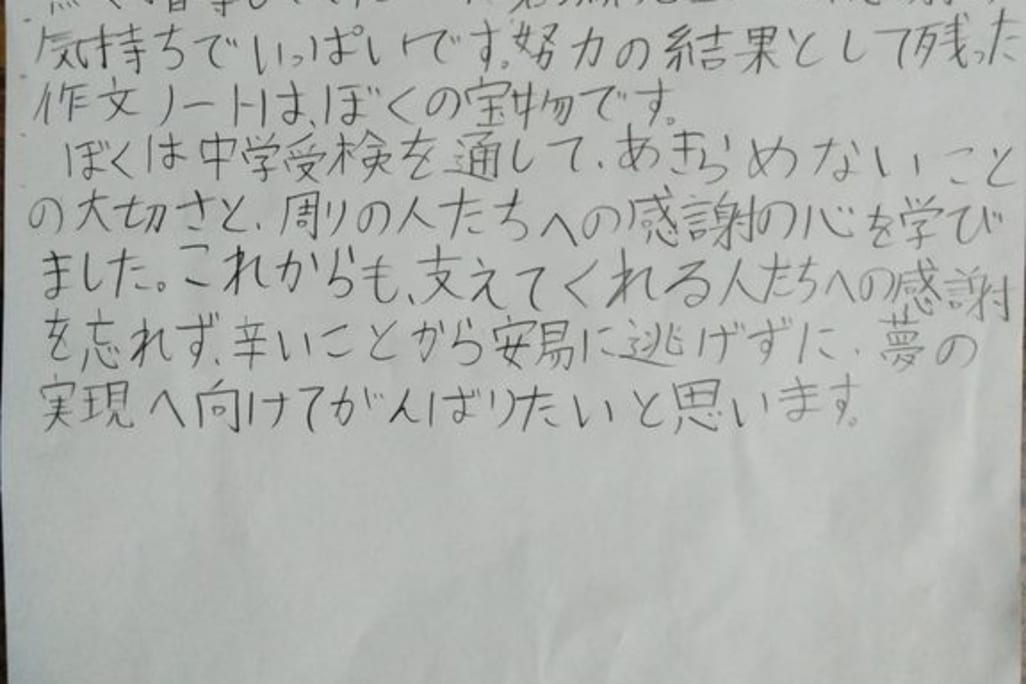 気持ちでいっぱいです。努力の結果として残った
作文ノートは、ぼくの宝物です。
ぼくは中学受検を通して、あきらめないこと
の大切さと、周りの人たちへの感謝の心を学び
ました。これからも、支えてくれる人たちへの感謝
を忘れず、辛いことから安易に逃げずに、夢の
実現へ向けてがんばりたいと思います。